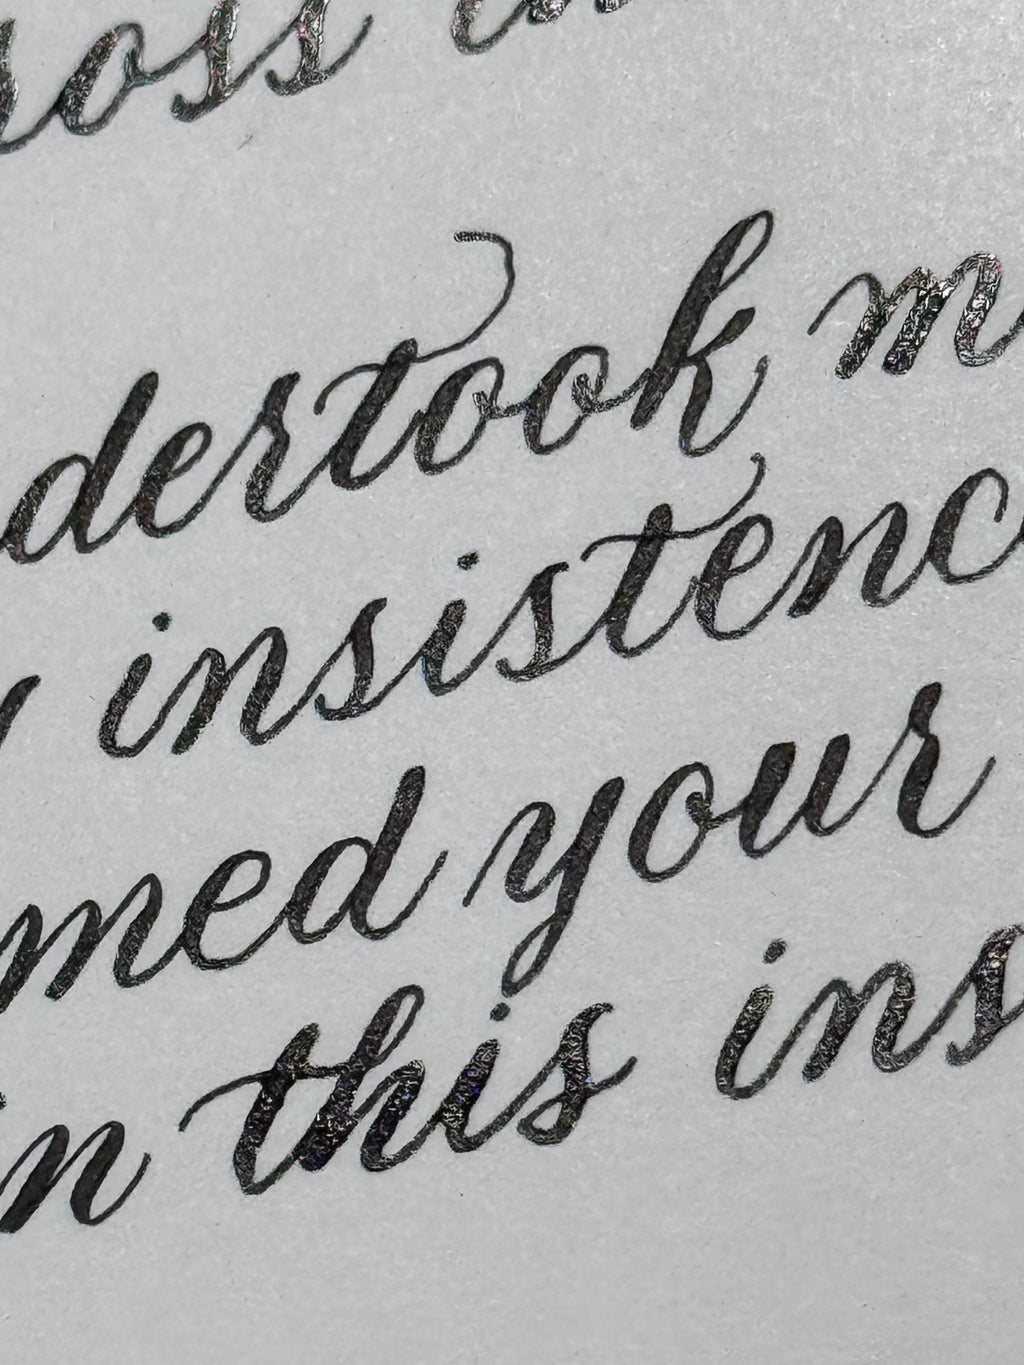 dertook m
insistenc
med your
in this ins